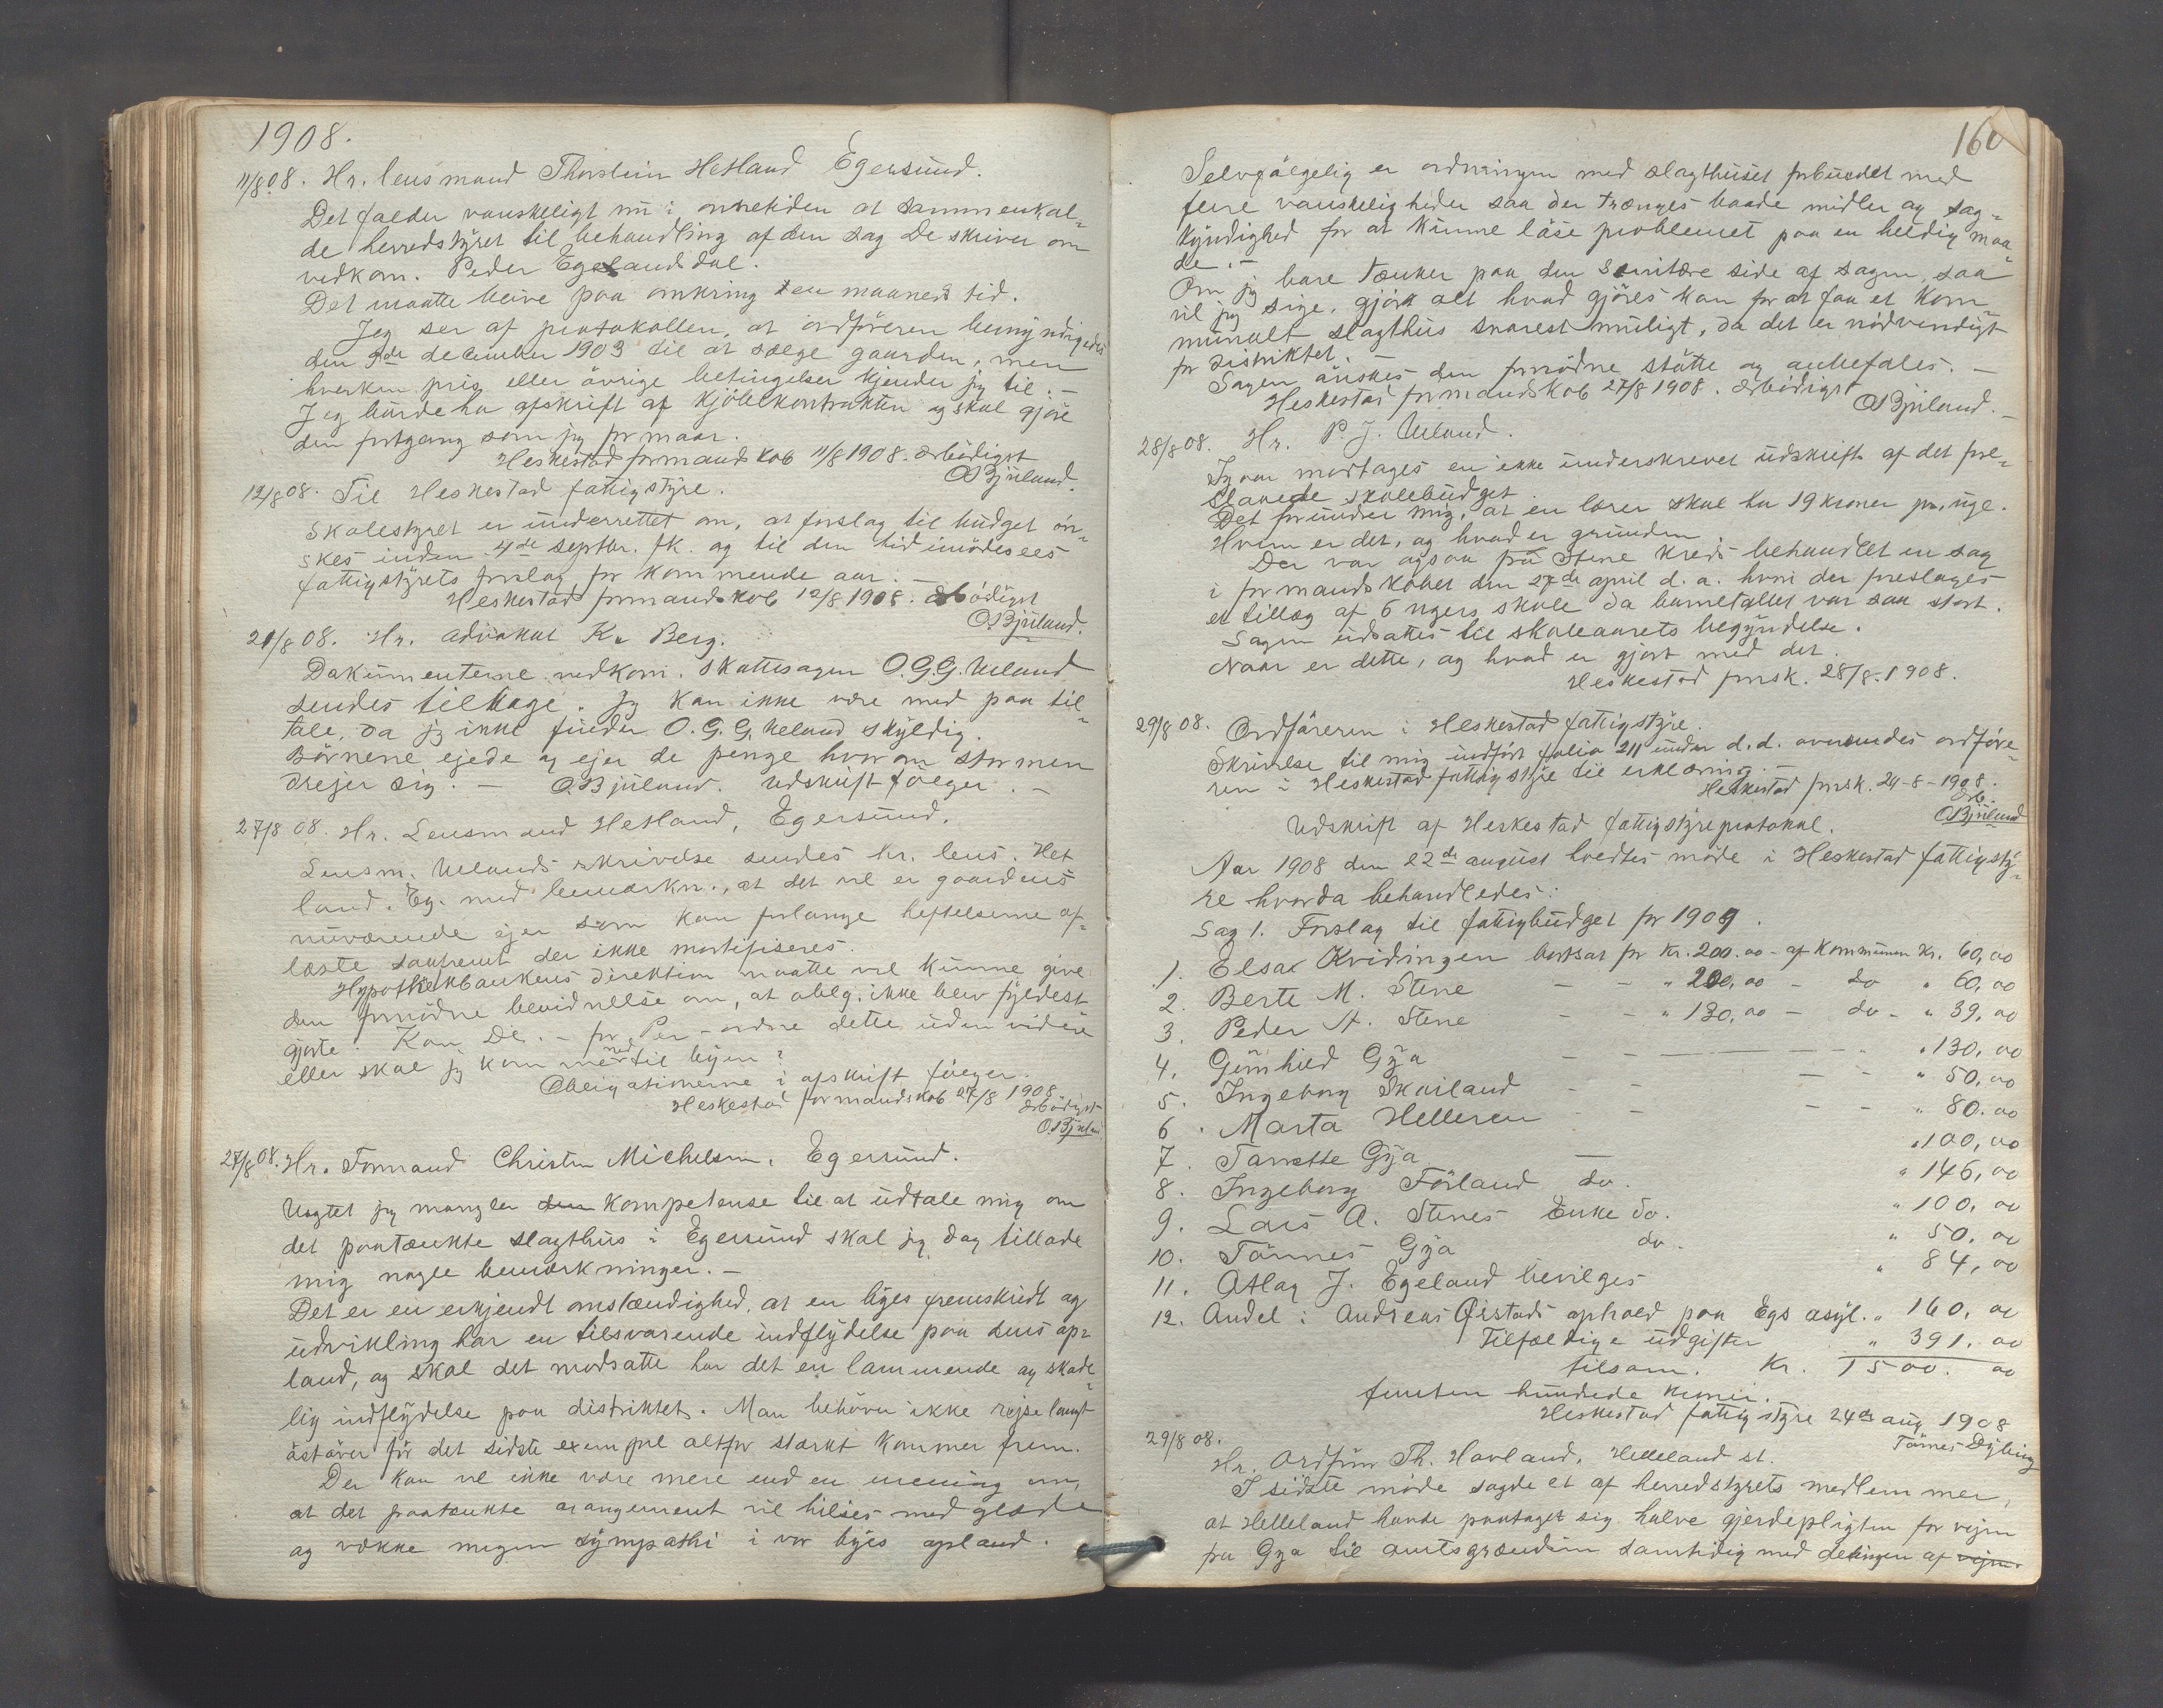 1908.
11/8 08. Hr. lensmand Thorstein Hetland Egersund.
Det falder vanskeligt nu i onnetiden at sammenkal-
de herredstyret til behandling af den sag De skriver om
vedkom. Peder Egelandsdal.
Det maatte blive paa omkring en maaneds tid.
Jeg ser af protokollen, at ordføreren bemyndigedes
den 9de december 1903 til at sælge gaarden, men
hverken pris eller øvrige betingelser kjender jeg til. -
Jeg burde ha afskrift af kjøbekontrakten og skal gjøre
den fortgang som jeg formaar.
Heskestad formandskab 11/8 1908. ærbødigst
O Bjuland.
12/8 08. Til Heskestad fattigstyre.
Skolestyret er underrettet om, at forslag til budget øn-
skes inden 4de septbr. fk. og til den tid imødesees
fattigstyrets forslag for kommende aar. -
Heskestad formandskab 12/8 1908. ærbødigst
O. Bjuland.
21/8 08. Hr. advokat K. Berg.
Dokumenterne vedkom. skattesagen O.G.G. Ueland
sendes tilbage. Jeg kan ikke være med paa til-
tale, da jeg ikke finder O.G.G. Ueland skyldig.
Børnene ejede og ejer de penge hvorom stormen
drejer sig. - O. Bjuland. Udskrift følger. -
27/8 08. Hr. Lensmand Hetland, Egersund.
Lensm. Uelands skrivelse sendes hr. lens. Het-
land. Eg. med bemærkn., at det vel er gaardens
nuværende ejer som kan forlange heftelserne af-
læste saafremt der ikke mortifiseres.
Hypothekbankens direktion maatte vel kunne give
den fornødne bevidnelse om, at oblg. ikke blev fyldest-
gjorte. Kan De. - pr Per - ordne dette uden videre
eller skal jeg kom med til byen?
Obligationerne i afskrift følger.
Heskestad formandskab 27/8 1908
ærbødigst
O. Bjuland
27/8 08. Hr. Formand Christen Michelsen, Egersund.
Uagtet jeg mangler den kompetense til at udtale mig om
det paatænkte slagthus i Egersund skal jeg dog tillade
mig nogle bemærkninger. -
Det er en erkjendt omstændighed, at en byes fremskridt og
udvikling har en tilsvarende indflydelse paa dens op-
land, og skal det modsatte har det en lammende og skade-
lig indflydelse paa distriktet. Man behøver ikke rejse langt
østover før det sidste exempel altfor stærkt kommer frem.
Der kan vel ikke være mere end en mening om,
at det paatænkte arangement vil hilses med glæde
og vække megen sympathi i vor byes opland.
160
Selvfølgelig er ordningen med slagthuset forbundet med
flere vanskeligheder saa der trænges baade midler og sag-
kyndighed for at kunne løse problemet paa en heldig maa-
de. -
Om jeg bare tænker paa den sanitære side af sagen, saa
vil jeg sige, gjør alt hvad gjøres kan for at faa et kom-
munalt slagthus snarest muligt, da det er nødvendigt
for distriktet. -
Sagen ønskes den fornødne støtte og anbefales. -
Heskestad formandskab 27/8 1908. ærbødigst
O Bjuland. -
28/8 08. Hr. P. J. Ueland.
Igaar modtages en ikke underskrevet udskrift af det fore-
slaaede skolebudget.
Det forundrer mig, at en lærer skal ha 19 kroner pr. uge.
Hvem er det, og hvad er grunden.
Der var ogsaa fra Stene kreds behandlet en sag
i formandskabet den 27de april d. a. hvori der foreslages
et tillæg af 6 ugers skole da barnetallet var saa stort.
Sagen udsattes til skoleaarets begyndelse.
Naar er dette, og hvad er gjort med det.
Heskestad forsk. 28/8. 1908.
29/8 08. Ordføreren i Heskestad fattigstyre.
Skrivelse til mig indført folio 211 under d.d. oversendes ordføre-
ren i Heskestad fattigstyre til erklæring. -
Heskestad forsk. 24-8-1908.
Ærb.
O Bjuland
Udskrift af Heskestad fattigstyreprotokol.
Aar 1908 den 22de august holdtes møde i Heskestad fattigsty-
re hvorda behandledes:
Sag 1. Forslag til fattigbudget for 1909.
1. Elsa Kvidingen bortsat for kr. 200.00 - af kommunen kr. 60,00
2. Berte M. Stene - - " 200,00 - do " 60,00
3. Peder A. Stene - - " 130,00 - do - " 39,00
4. Gunhild Gya - - - " 130,00
5. Ingeborg Skailand - - - - " 50,00
6. Marta Helleren - - - " 80.00
7. Tanette Gya - " 100,00
8. Ingeborg Förland do. " 146,00
9. Lars A. Stenes Enke do. " 100,00
10. Tønnes Gya do. " 50,00
11. Atlag J. Egeland bevilges " 84,00
12. Andel i Andreas Qistads ophold paa Egs asyl. " 160,00
Tilfældige udgifter " 391.00
tilsam. Kr. 1500.00
femten hundrede kroner.
Heskestad fattigstyre 24de aug 1908
Tønnes Dyling
29/8 08.
Hr. Ordfører Th. Havland, Helleland st.
I sidste møde sagde et af herredstyrets medlemmer,
at Helleland havde paataget sig halve gjerdepligten for vejen
fra Gya til amtsgrændsen samtidig med delingen af vejen.